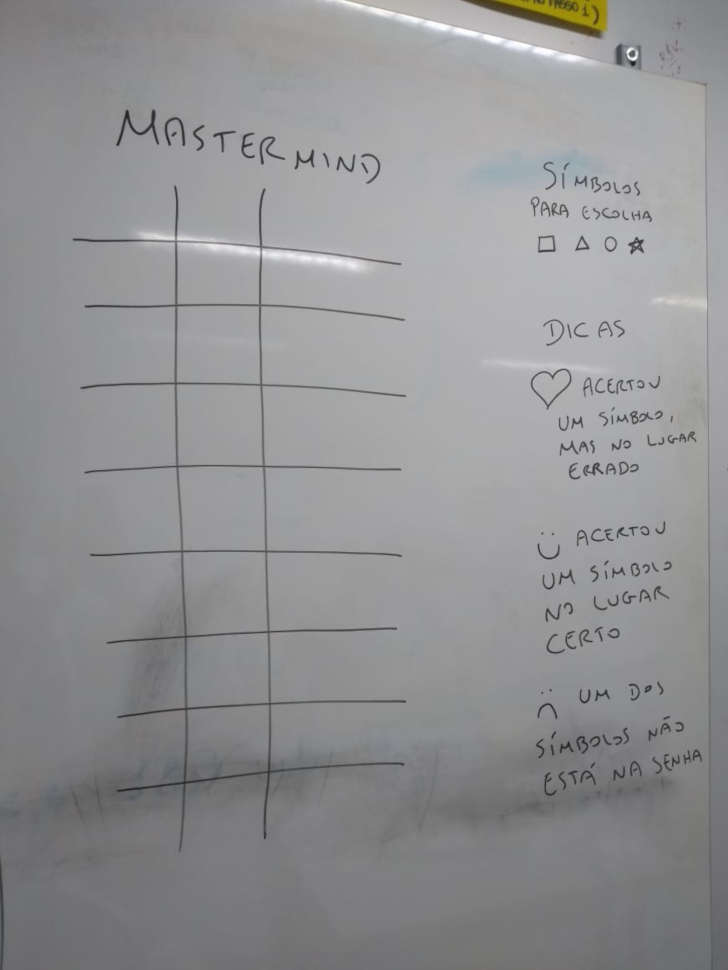 MASTERMIND
SÍMBOLOS
PARA ESCOLHA
□ △ ○ ☆
DICAS
♡ ACERTOU
UM SÍMBOLO,
MAS NO LUGAR
ERRADO
ACERTOU
UM SÍMBOLO
NO LUGAR
CERTO
UM DOS
SÍMBOLOS NÃO
ESTÁ NA SENHA